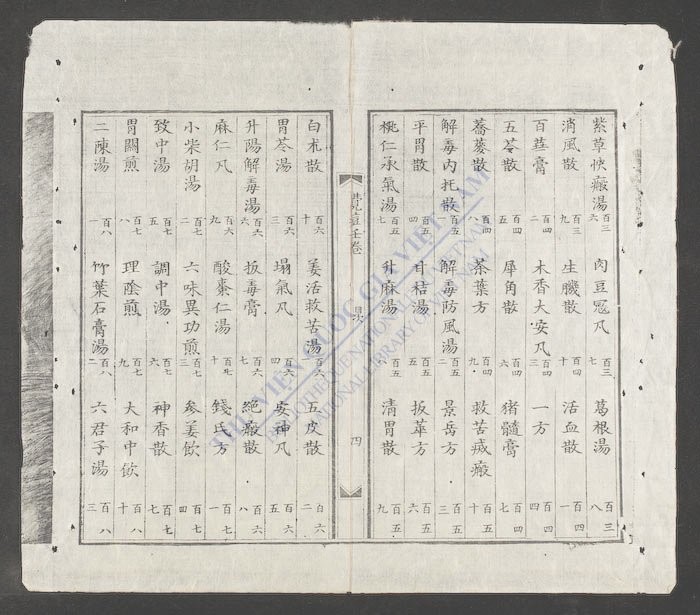 紫草快癍湯 百三六 肉豆冦凡 百三七 葛根湯 百三八
消風散 百三九 生肌散 百四十 活血散 百四一
百華膏 百四二 木香大安凡 百四三 一方 百四四
五苓散 百四五 犀角散 百四六 猪髓膏 百四七
蕎麥散 百四八 茶葉方 百四九 救苦滅癍 百四十
解毒內托散 百五一 解毒防風湯 百五二 景岳方 百五三
平胃散 百五四 甘桔湯 百五五 扳萃方 百五六
桃仁承氣湯 百五七 升麻湯 百五 清胃散 百五九
壬卷 目次 四
白朮散 百六十 姜活救苦湯 百六一 五皮散 百六二
胃苓湯 百六三 塌氣凡 百六四 安神凡 百六五
升陽解毒湯 百六六 扳毒膏 百六七 絕癍散 百六八
麻仁凡 百六九 酸棗仁湯 百七十 錢氏方 百七一
小柴胡湯 百七二 六味異功煎 百七三 參姜飲 百七四
致中湯 百七五 調中湯 百七六 神香散 百七七
胃關煎 百七八 理陰煎 百七九 大和中飲 百八十
二陳湯 百八一 竹葉石膏湯 百八二 六君子湯 百八三
THƯ VIỆN QUỐC GIA VIỆT NAM
BIBLIOTHEQUE NATIONALE DU VIETNAM
NATIONAL LIBRARY OF VIETNAM